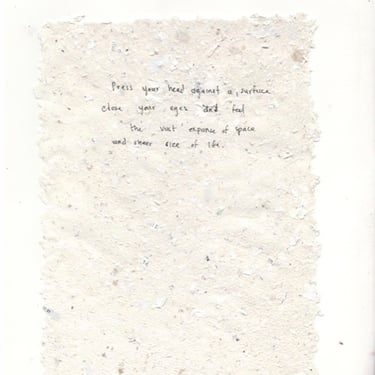 Press your head against a surface
close your eyes and feel
the vast expanse of space
and sheer size of life.